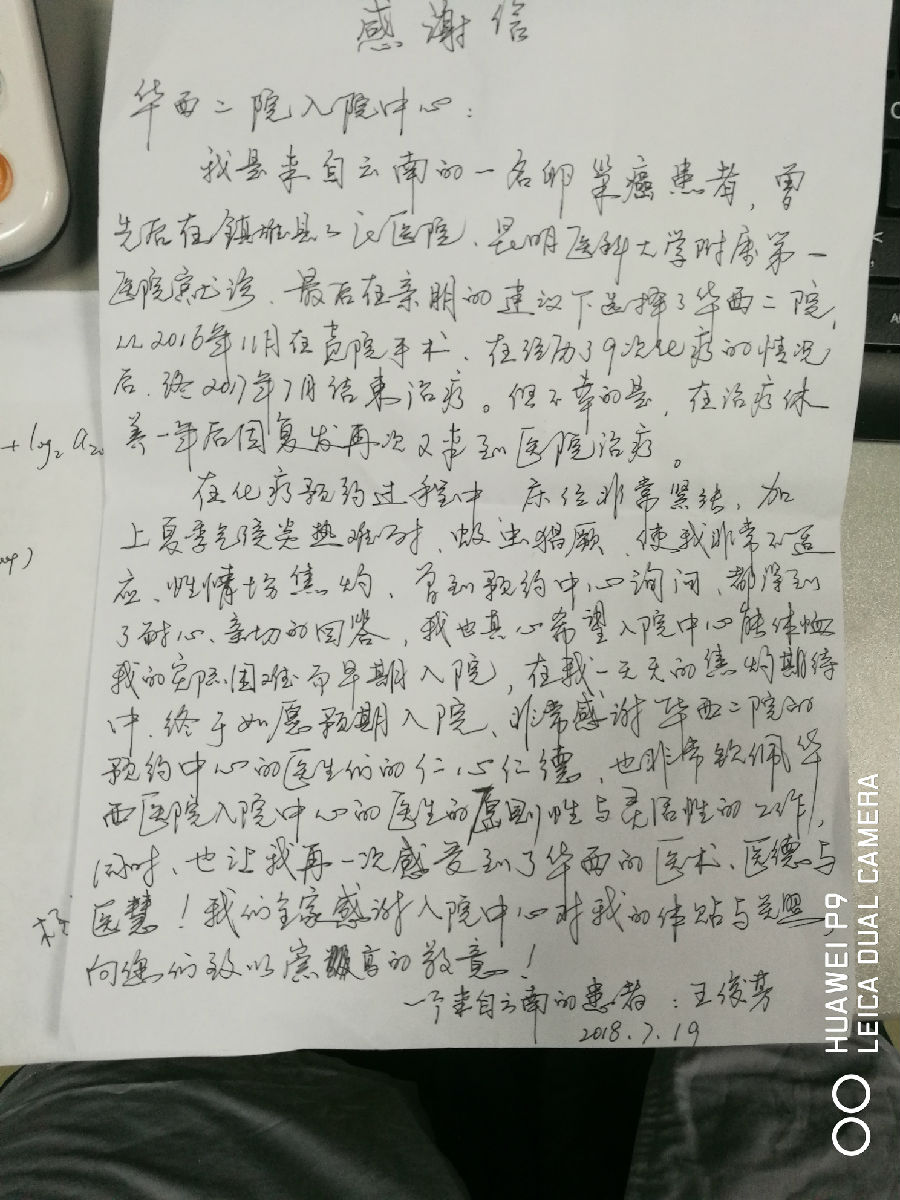 感谢信
华西二院入院中心：
我是来自云南的一名卵巢癌患者，曾
先后在镇雄县人民医院、昆明医科大学附属第一
医院就诊、最后在亲朋的建议下选择了华西二院，
以2016年11月在贵院手术、在经历了9次化疗的情况
后、终2017年7月结束治疗。但不幸的是，在治疗休
养一年后因复发再次又来到医院治疗。
在化疗预约过程中 床位非常紧张，加
上夏季气候炎热难耐、蚊虫猖厥、使我非常不适
应、性情焦灼、曾到预约中心询问、都得到
了耐心、亲切的回答，我也真心希望入院中心能体恤
我的实际困难而早期入院，在我一天天的焦灼期待
中、终于如愿预期入院、非常感谢华西二院的
预约中心的医生们的仁心仁德，也非常钦佩华
西医院入院中心的医生的原则性与灵活性的工作，
同时、也让我再一次感受到了华西的医术、医德与
医慧！我们全家感谢入院中心对我的体贴与关照
向您们致以崇高的敬意！
一个来自云南的患者：王俊芳
2018.7.19
+ log₂ a₂₀
HUAWEI P9
LEICA DUAL CAMERA